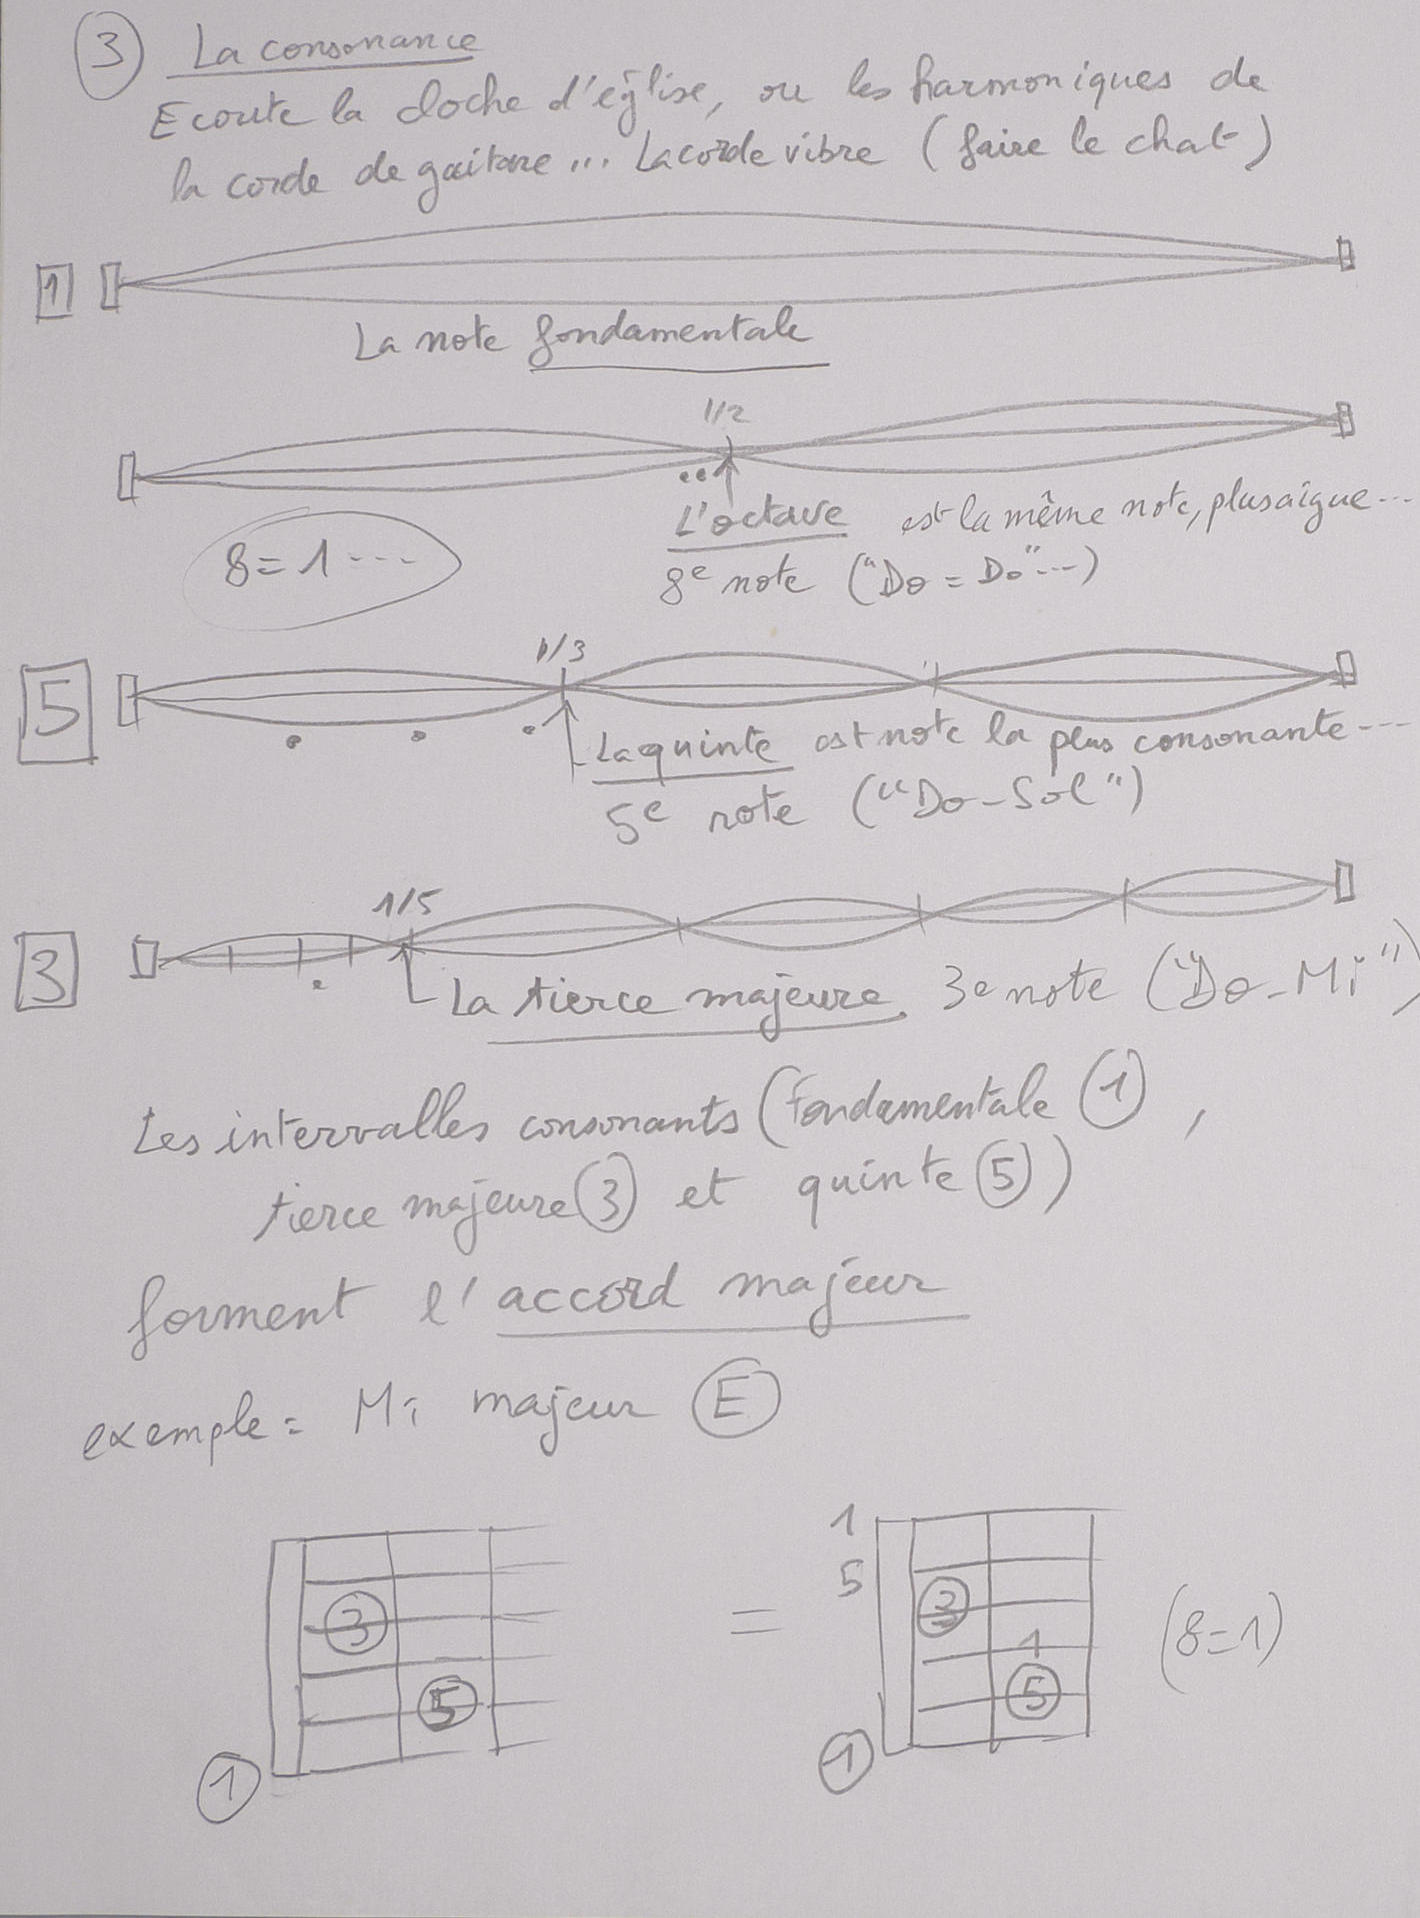 3 La consonance
Ecoute la cloche d'église, ou les harmoniques de
la corde de guitare... La corde vibre (faire le chat)
1
La note fondamentale
1/2
L'octave est la même note, plus aigue...
8=1...
8e note ("Do = Do"...)
1/3
5
La quinte est note la plus consonante...
5e note ("Do-Sol")
1/5
3
La tierce majeure. 3e note ("Do-Mi")
Les intervalles consonants (fondamentale 1,
tierce majeure 3 et quinte 5)
forment l'accord majeur
exemple = Mi majeur E
1
5
3 = 3
1 (8=1)
5 5
1 1